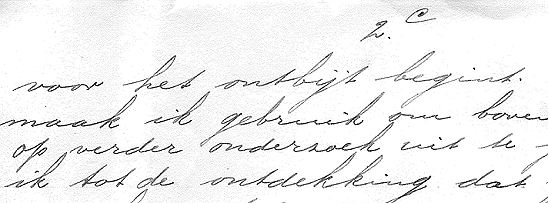 2. C
voor het ontbijt begint.
maak ik gebruik om boven
op verder onderzoek uit te
ik tot de ontdekking dat